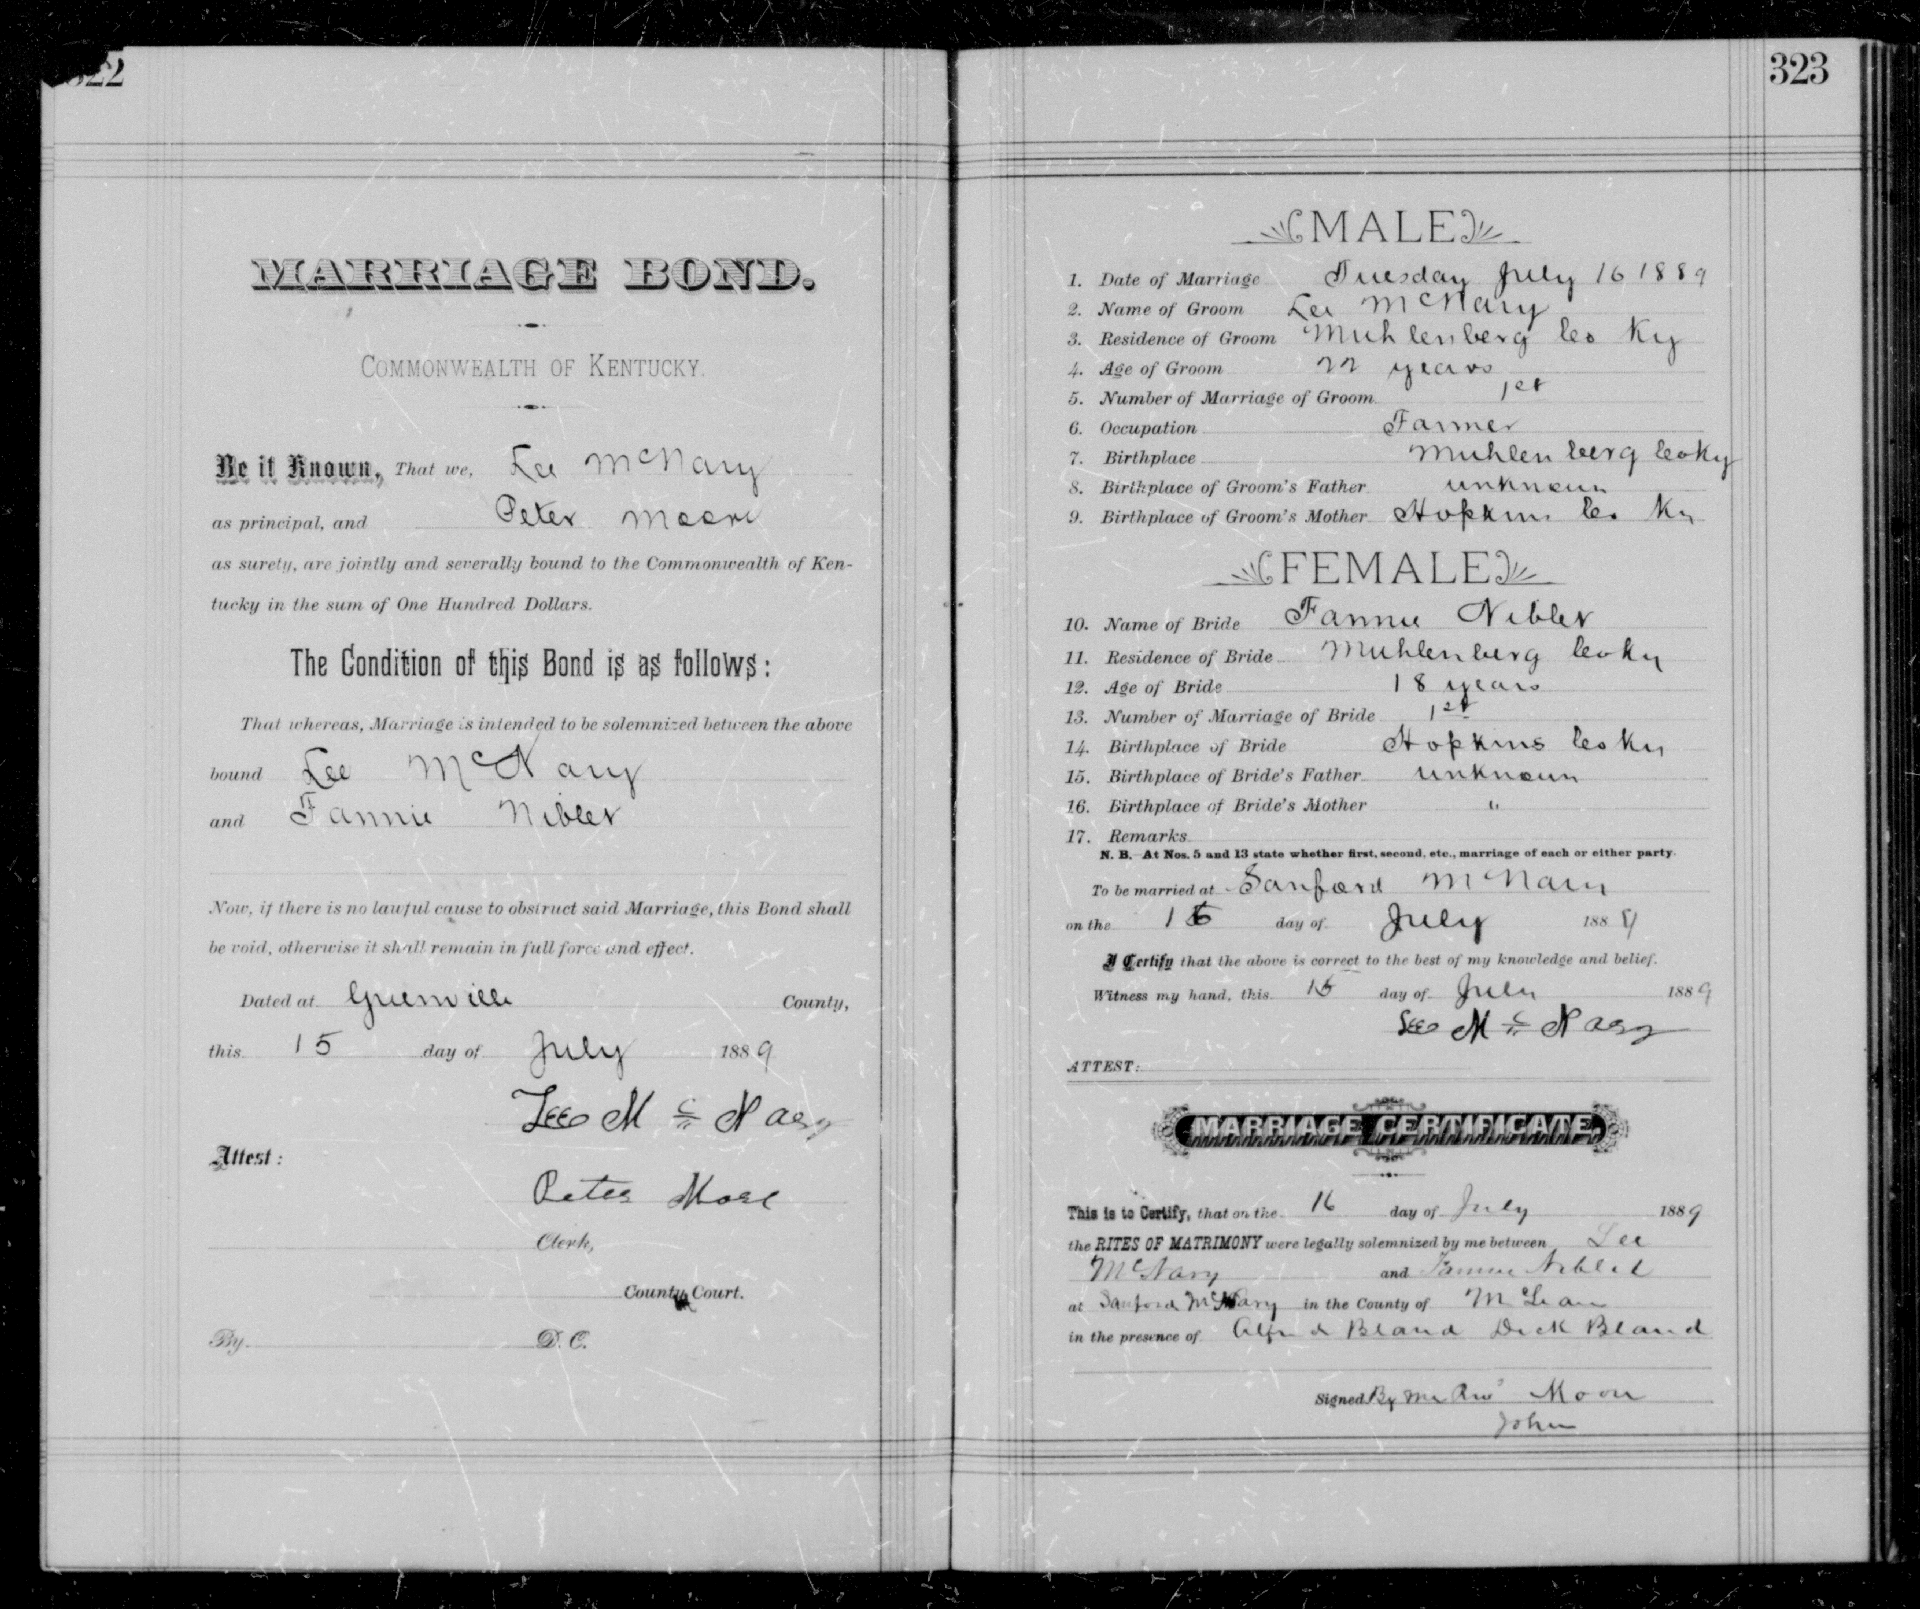 322
MARRIAGE BOND.
COMMONWEALTH OF KENTUCKY.
Be it Known, That we, Lee McNary
as principal, and Peter Moore
as surety, are jointly and severally bound to the Commonwealth of Ken-
tucky in the sum of One Hundred Dollars.
The Condition of this Bond is as follows:
That whereas, Marriage is intended to be solemnized between the above
bound Lee McNary
and Fannie Niblet
Now, if there is no lawful cause to obstruct said Marriage, this Bond shall
be void, otherwise it shall remain in full force and effect.
Dated at Greenville County,
this 15 day of July 1889
Lee McNary
Attest:
Peter More
Clerk,
County Court.
By D. C.
323
MALE
1. Date of Marriage Tuesday July 16 1889
2. Name of Groom Lee McNary
3. Residence of Groom Muhlenberg Co Ky
4. Age of Groom 22 years
5. Number of Marriage of Groom 1st
6. Occupation Farmer
7. Birthplace Muhlenberg Co Ky
8. Birthplace of Groom's Father unknown
9. Birthplace of Groom's Mother Hopkins Co Ky
FEMALE
10. Name of Bride Fannie Niblet
11. Residence of Bride Muhlenberg Co Ky
12. Age of Bride 18 years
13. Number of Marriage of Bride 1st
14. Birthplace of Bride Hopkins Co Ky
15. Birthplace of Bride's Father unknown
16. Birthplace of Bride's Mother "
17. Remarks
N. B. At Nos. 5 and 13 state whether first, second, etc., marriage of each or either party.
To be married at Sanford McNary
on the 16 day of July 1889
I Certify that the above is correct to the best of my knowledge and belief.
Witness my hand, this 15 day of July 1889
Lee McNary
ATTEST:
MARRIAGE CERTIFICATE.
This is to Certify, that on the 16 day of July 1889
the RITES OF MATRIMONY were legally solemnized by me between Lee
McNary and Fannie Niblet
at Sanford McNary in the County of McLean
in the presence of Alfred Bland Dick Bland
Signed By me Rev Moon
John